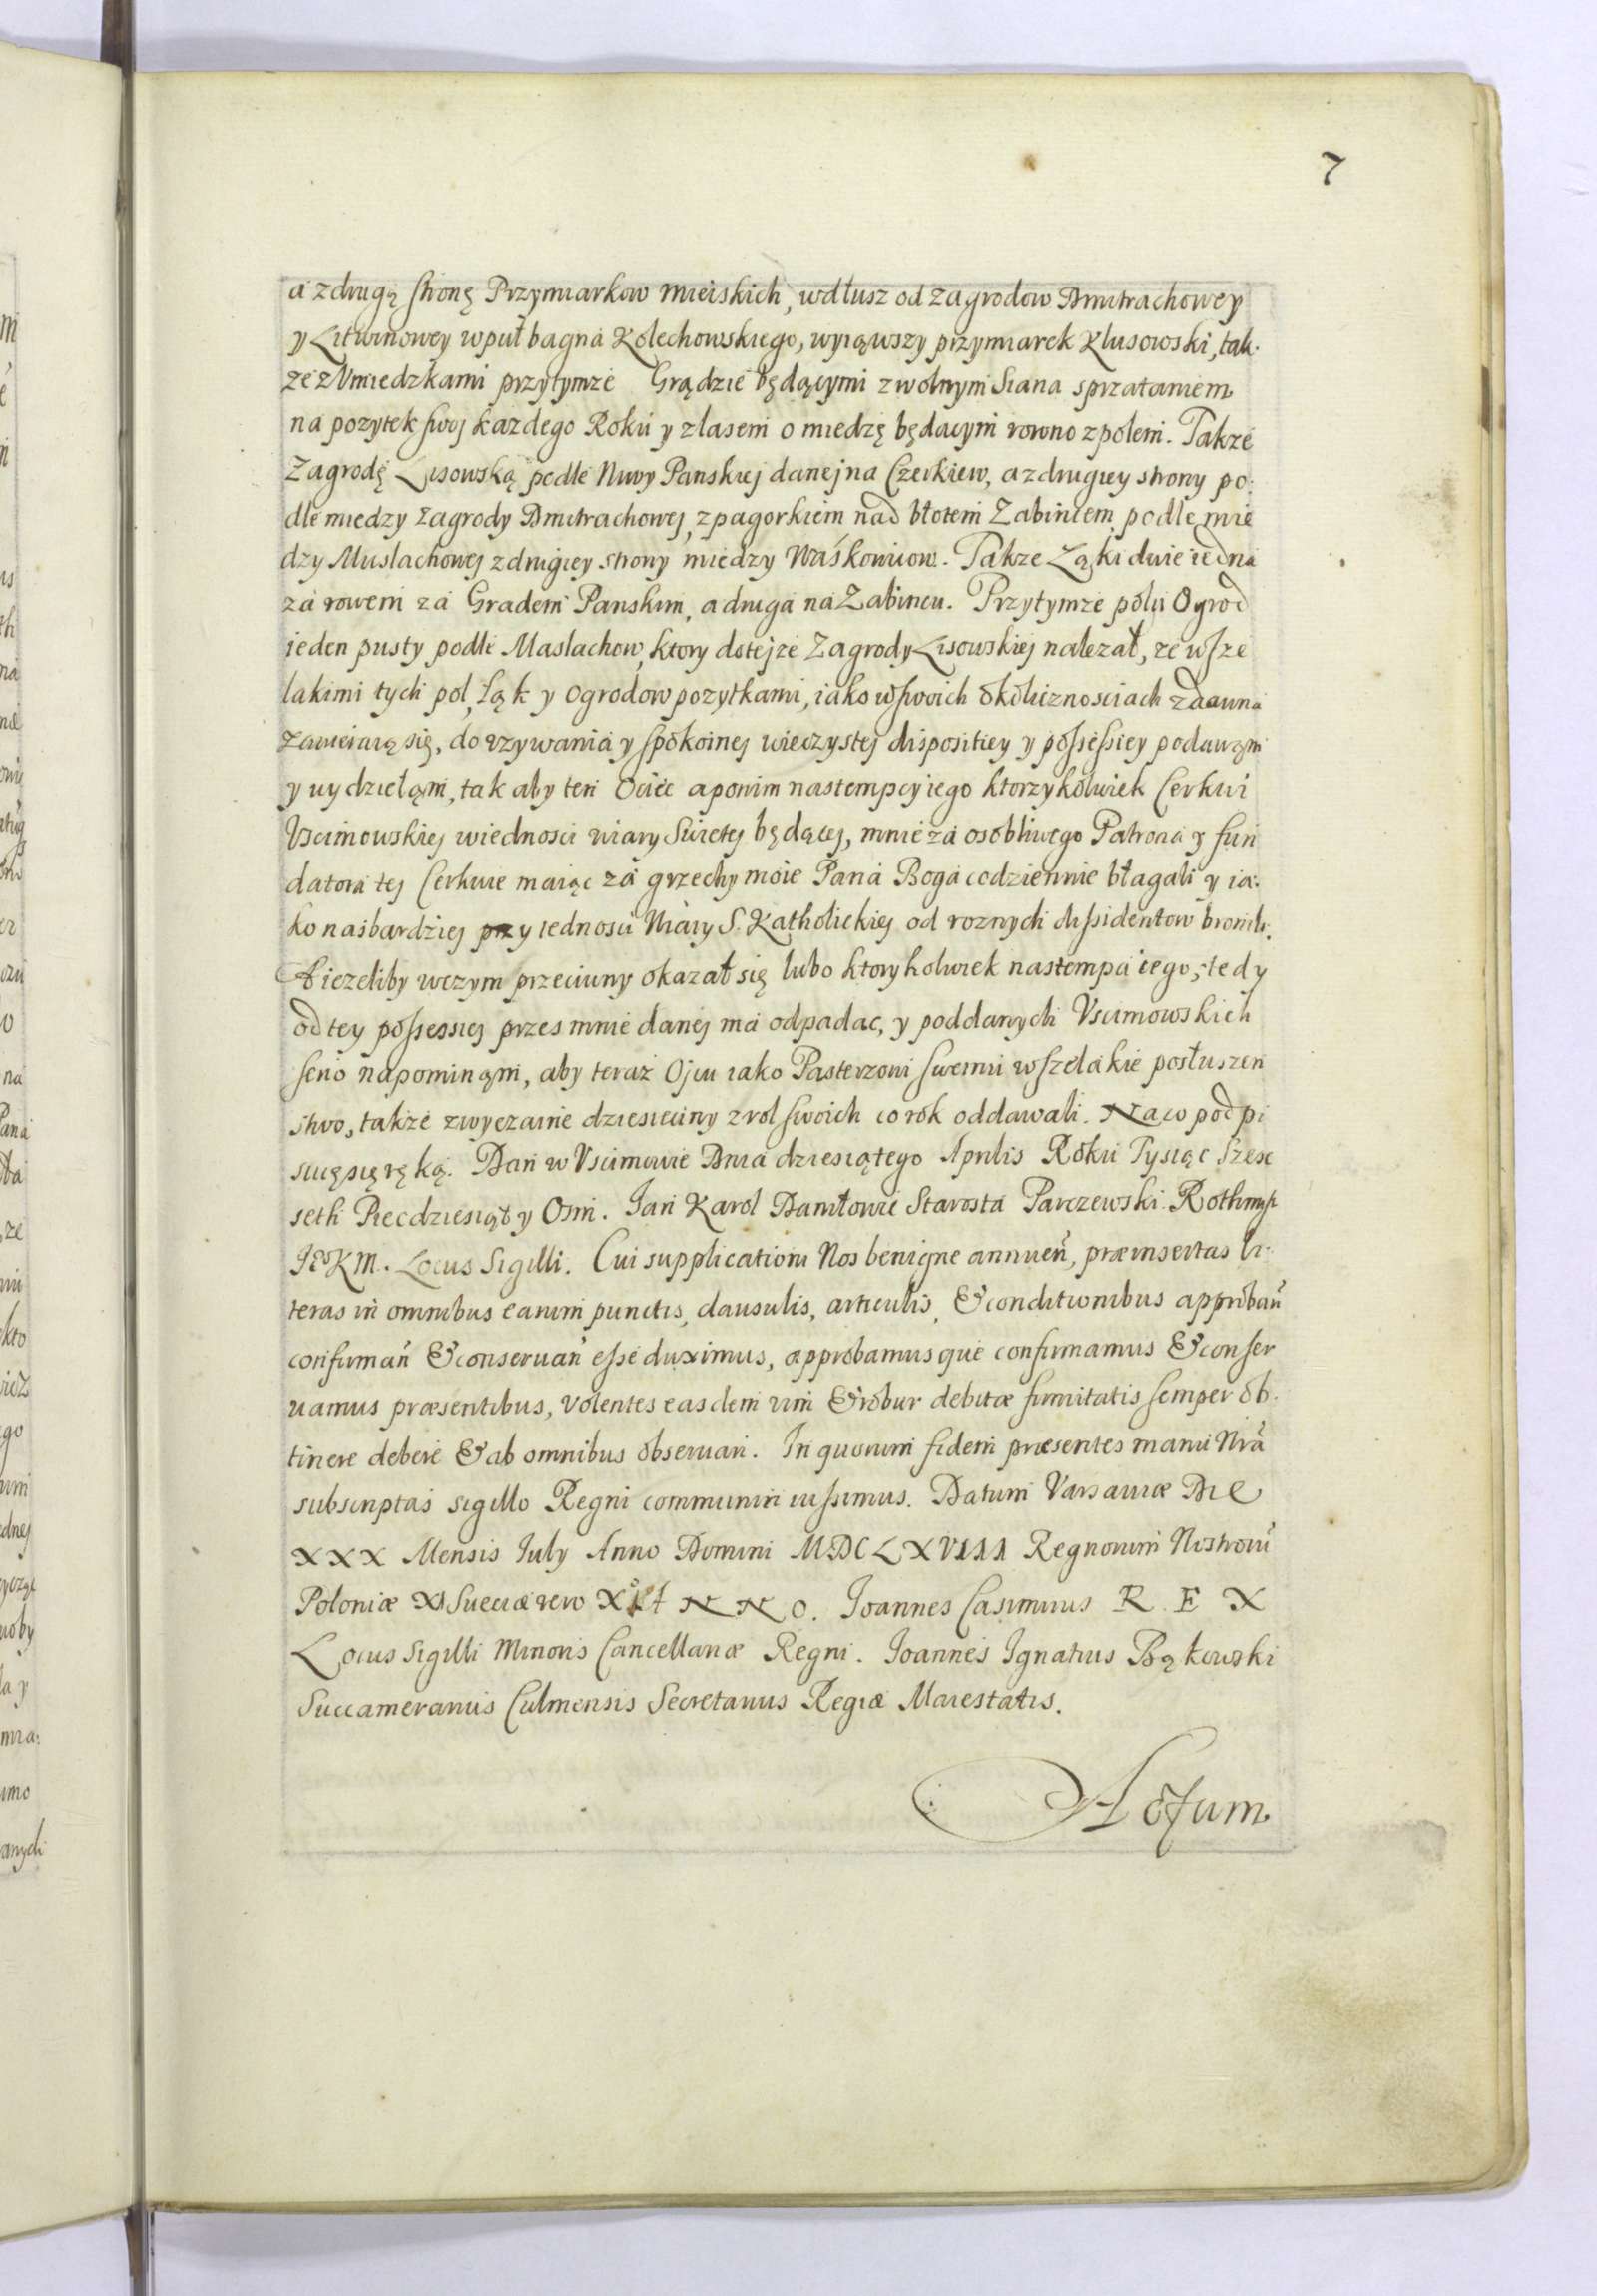 7
a z drugą stronę Przymiarkow mieiskich, wdłusz od zagrodow Dmitrachowey
y Litwinowey wpuł bagna Kolechowskiego, wyiąwszy przymiarek Klusowski, tak:
że z Vmiedzkami przytymże Grądzie będącymi z wolnym Siana sprzataniem
na pozytek swoj kazdego Roku y zlasem o miedzę będacymi rowno z polem. Takze
Zagrodę Lisowską podle Niwy Panskiej danej na Czerkiew, a z drugiey strony po:
dle miedzy zagrody Dmitrachowej, z pagorkiem nad błotem Zabincem podle mie
dzy Muslachowej z drugiey strony miedzy Waśkowicow. Takze Ląki dwie iedna
za rowem za Gradem Panskim, a druga na Zabincu. Przytymze polu Ogrod
ieden pusty podle Maslachow, ktory do tejze Zagrody Lisowskiej nalezał, ze wsze
lakimi tych pol, ląk y ogrodow pozytkami, iako w swoich okolicznosciach zdawna
zawieraią się, do vzywania y spokoinej wieczystej dispositiey y possessiey podawam
y wydzieląm, tak aby ten Ociec a ponim nastempcy iego ktorzykolwiek Cerkwi
Vscimowskiej wiednosci wiary Swietej będącej, mnie za osobliwego Patrona y fun
datora tej Cerkwie maiąc za grzechy moie Pana Boga codziennie błagali y ia:
ko naibardziej przy iednosci Wiary S. Katholickiej od roznych dissidentow bronili.
A iezeliby wczym przeciwny okazał się lubo ktorykolwiek nastempca iego, tedy
od tey possessiej przes mnie danej ma odpadac, y poddanych Vscimowskich
seno napominąm, aby teraz Ojcu iako Pasterzowi swemu wszelakie posłuszen
stwo, takze zwyczaine dziesieciny z rol swoich co rok oddawali. Na co podpi
suię się ręką. Dan w Vscimowie Dnia dziesiątego Aprilis Roku Tysiąc Szesc
seth Piecdziesiąt y Osm. Jan Karol Daniłowic Starosta Parczewski Rothmistr
JKM. Locus Sigilli. Cui supplicationi Nos benigne annuen̄, præinsertas li:
teras in omnibus earum punctis, clausulis, articulis, & conditionibus approban̄
confirman̄ & conseruan̄ esse duximus, approbamusque confirmamus & conser
uamus præsentibus, volentes easdem vim & robur debitæ firmitatis semper ob:
tinere debere & ab omnibus obseruari. In quorum fidem præsentes manu Nrā
subscriptas sigillo Regni communiri iussimus. Datum Varsauiæ Die
XXX Mensis July Anno Domini MDCLXVIII Regnorum Nostrorū
Poloniæ XX Sueciæ vero XXI ANNO. Joannes Casimirus REX
Locus Sigilli Minoris Cancellariæ Regni. Joannes Ignatius Bąkowski
Succamerarius Culmensis Secretarius Regiæ Maiestatis.